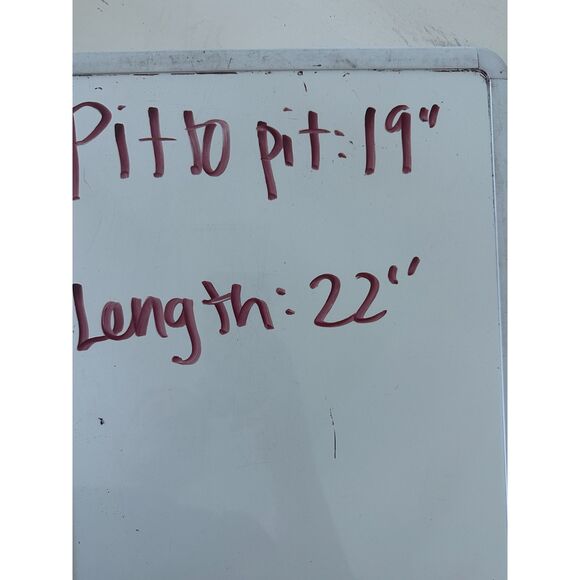 Pit to pit: 19"
Length: 22"